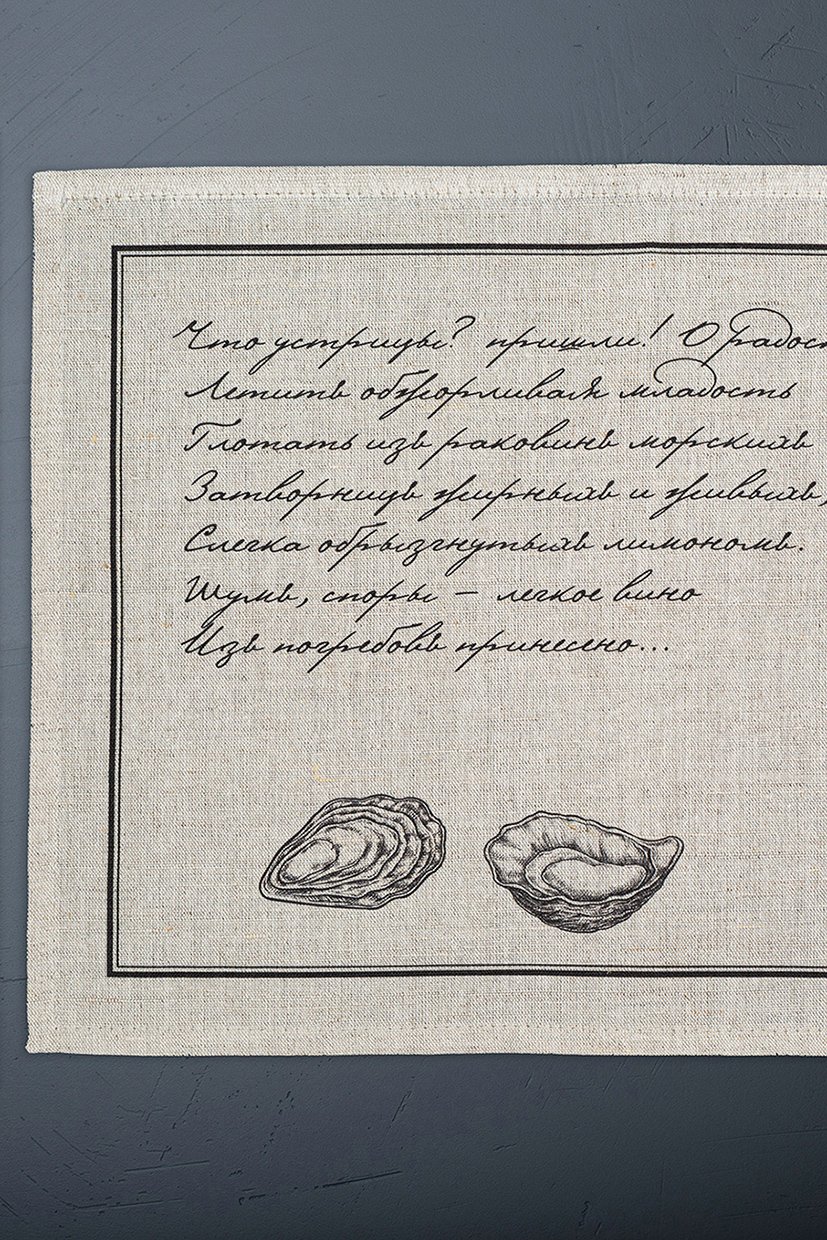 Что устрицы? пришли! О радос
Летитъ обжорливая младость
Глотать изъ раковинъ морскихъ
Затворницъ жирныхъ и живыхъ,
Слегка обрызгнутыхъ лимономъ.
Шумъ, споры — легкое вино
Изъ погребовъ принесено...